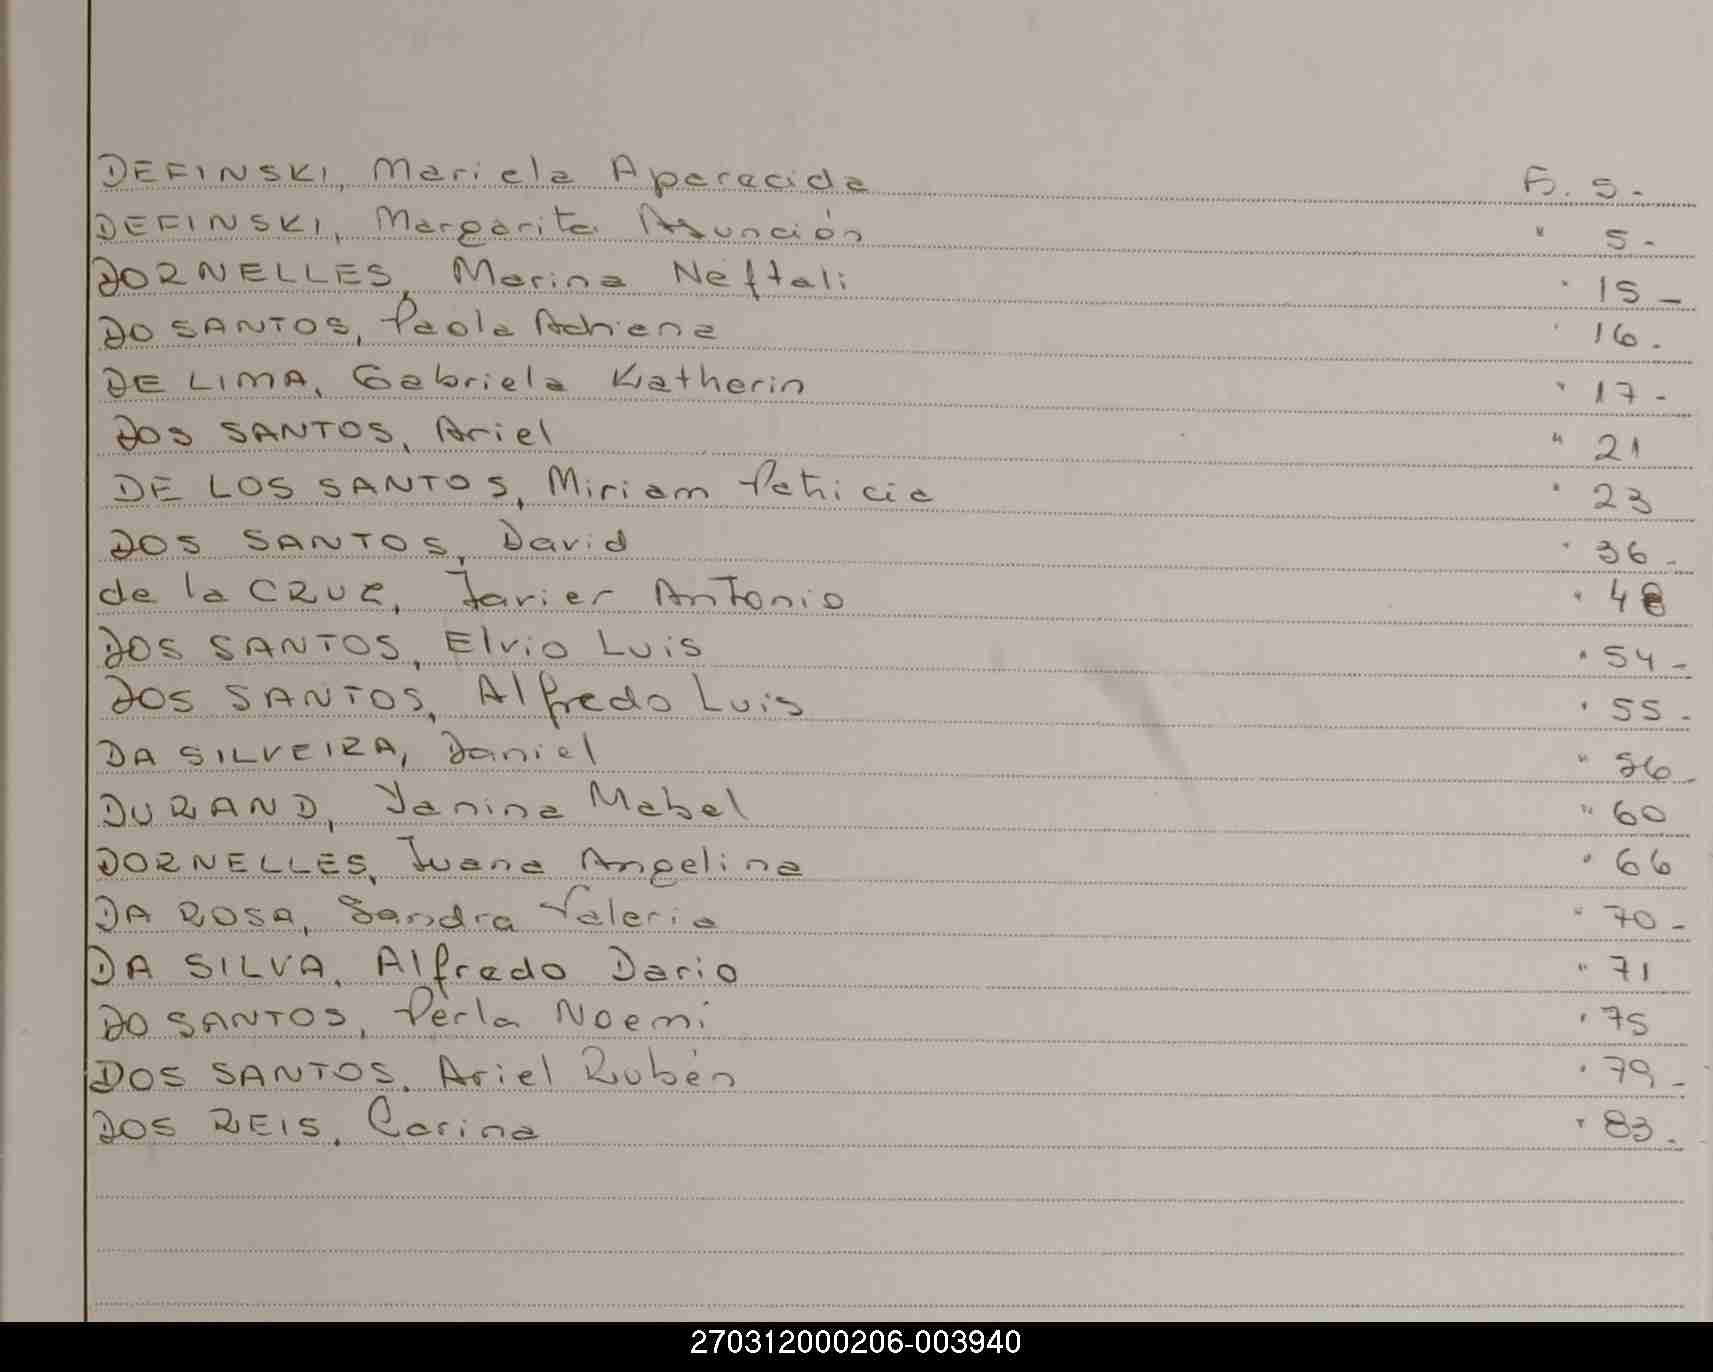 DEFINSKI, Mariela Aparecida Fs. 5.-
DEFINSKI, Margarita Asunción " 5.-
DORNELLES, Marina Neftali " 15-
DO SANTOS, Paola Adriana " 16.
DE LIMA, Gabriela Katherin " 17-
DOS SANTOS, Ariel " 21
DE LOS SANTOS, Miriam Patricia " 23
DOS SANTOS, David " 36-
de la CRUZ, Javier Antonio " 48
DOS SANTOS, Elvio Luis " 54-
DOS SANTOS, Alfredo Luis " 55.
DA SILVEIRA, Daniel " 56-
DURAND, Yanina Mabel " 60
DORNELLES, Juana Angelina " 66
DA ROSA, Sandra Valeria " 70-
DA SILVA, Alfredo Dario " 71
DO SANTOS, Perla Noemi " 75
DOS SANTOS, Ariel Rubén " 79-
DOS REIS, Carina " 83.
270312000206-003940